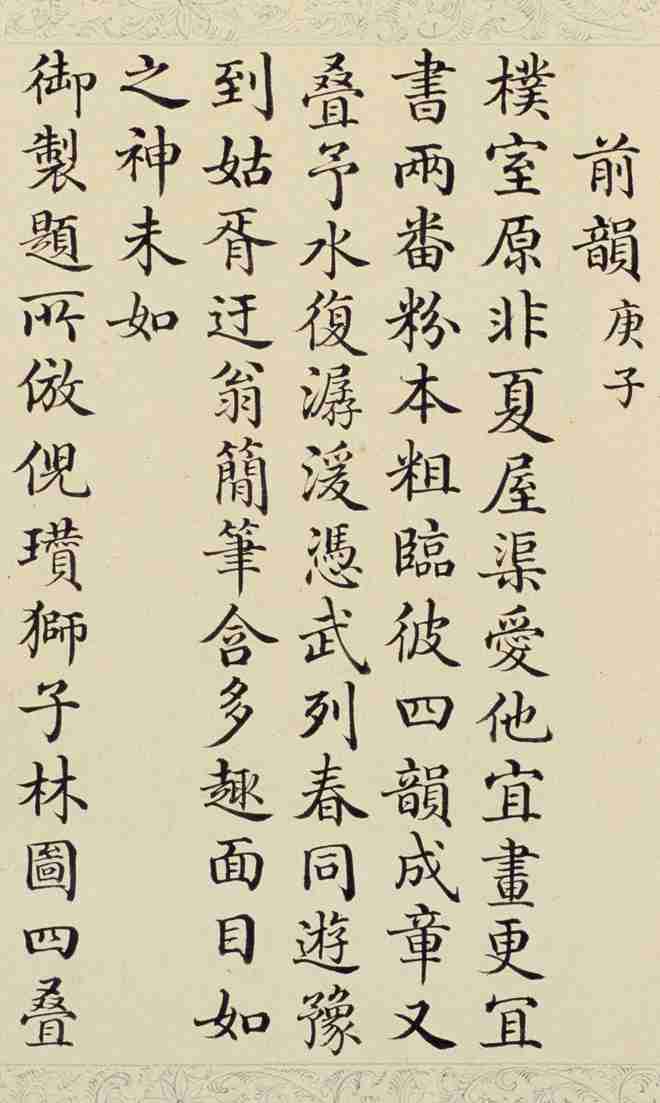 前韻 庚子
樸室原非夏屋渠愛他宜畫更宜
書兩番粉本粗臨彼四韻成章又
叠予水復潺湲憑武列春同遊豫
到姑胥迂翁簡筆含多趣面目如
之神未如
御製題所倣倪瓚獅子林圖四叠